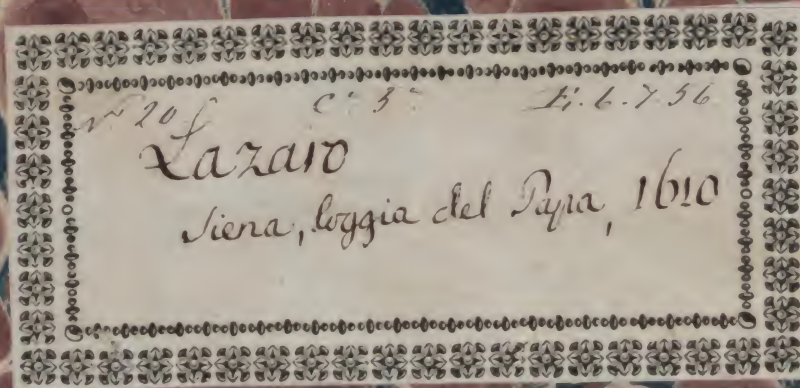 Nº 20 C. 3º
Lazaro
Siena, loggia del Papa, 1610